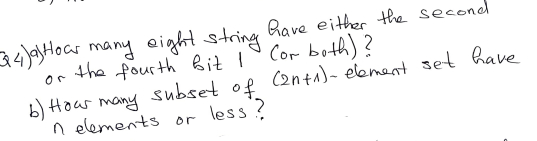 Q4)a)How many eight string have either the second
or the fourth bit 1 (or both)?
b) How many subset of (2n+1)-element set have
n elements or less?